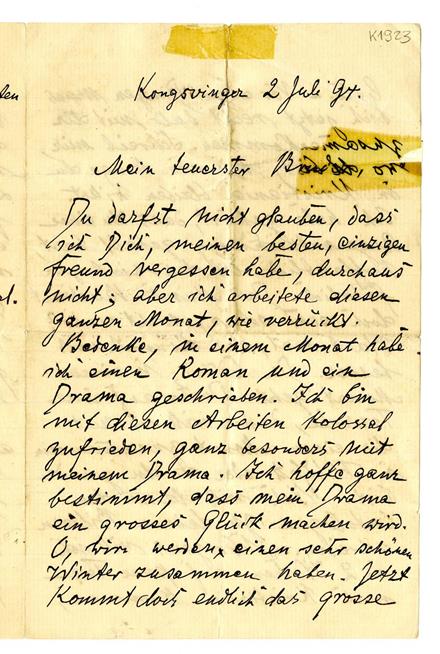 K1923
Kongsvinger 2 Juli 94.
Mein teuerster
Du darfst nicht glauben, dass
ich Dich, meinen besten, einzigen
Freund vergessen habe, durchaus
nicht; aber ich arbeitete diesen
ganzen Monat, wie verrückt.
Bedenke, in einem Monat habe
ich einen Roman und ein
Drama geschrieben. Ich bin
mit diesen Arbeiten kolossal
zufrieden, ganz besonders mit
meinem Drama. Ich hoffe ganz
bestimmt, dass mein Drama
ein grosses Glück machen wird.
O, wir werden einen sehr schönen
Winter zusammen haben. Jetzt
kommt doch endlich das grosse